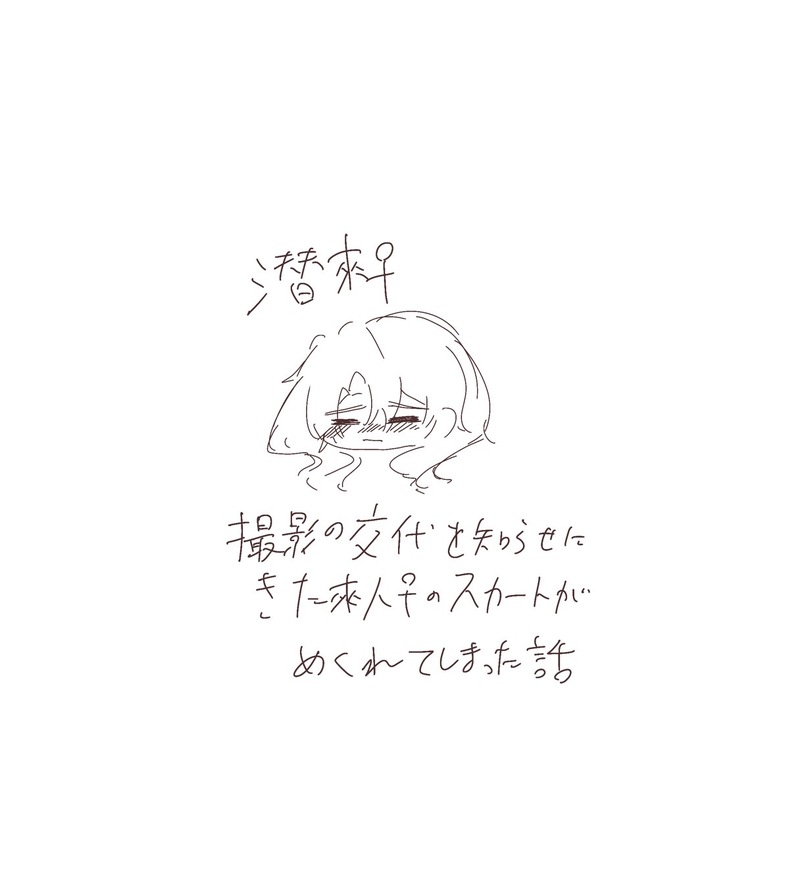 潜來♀
撮影の交代を知らせに
きた來人♀のスカートが
めくれてしまった話